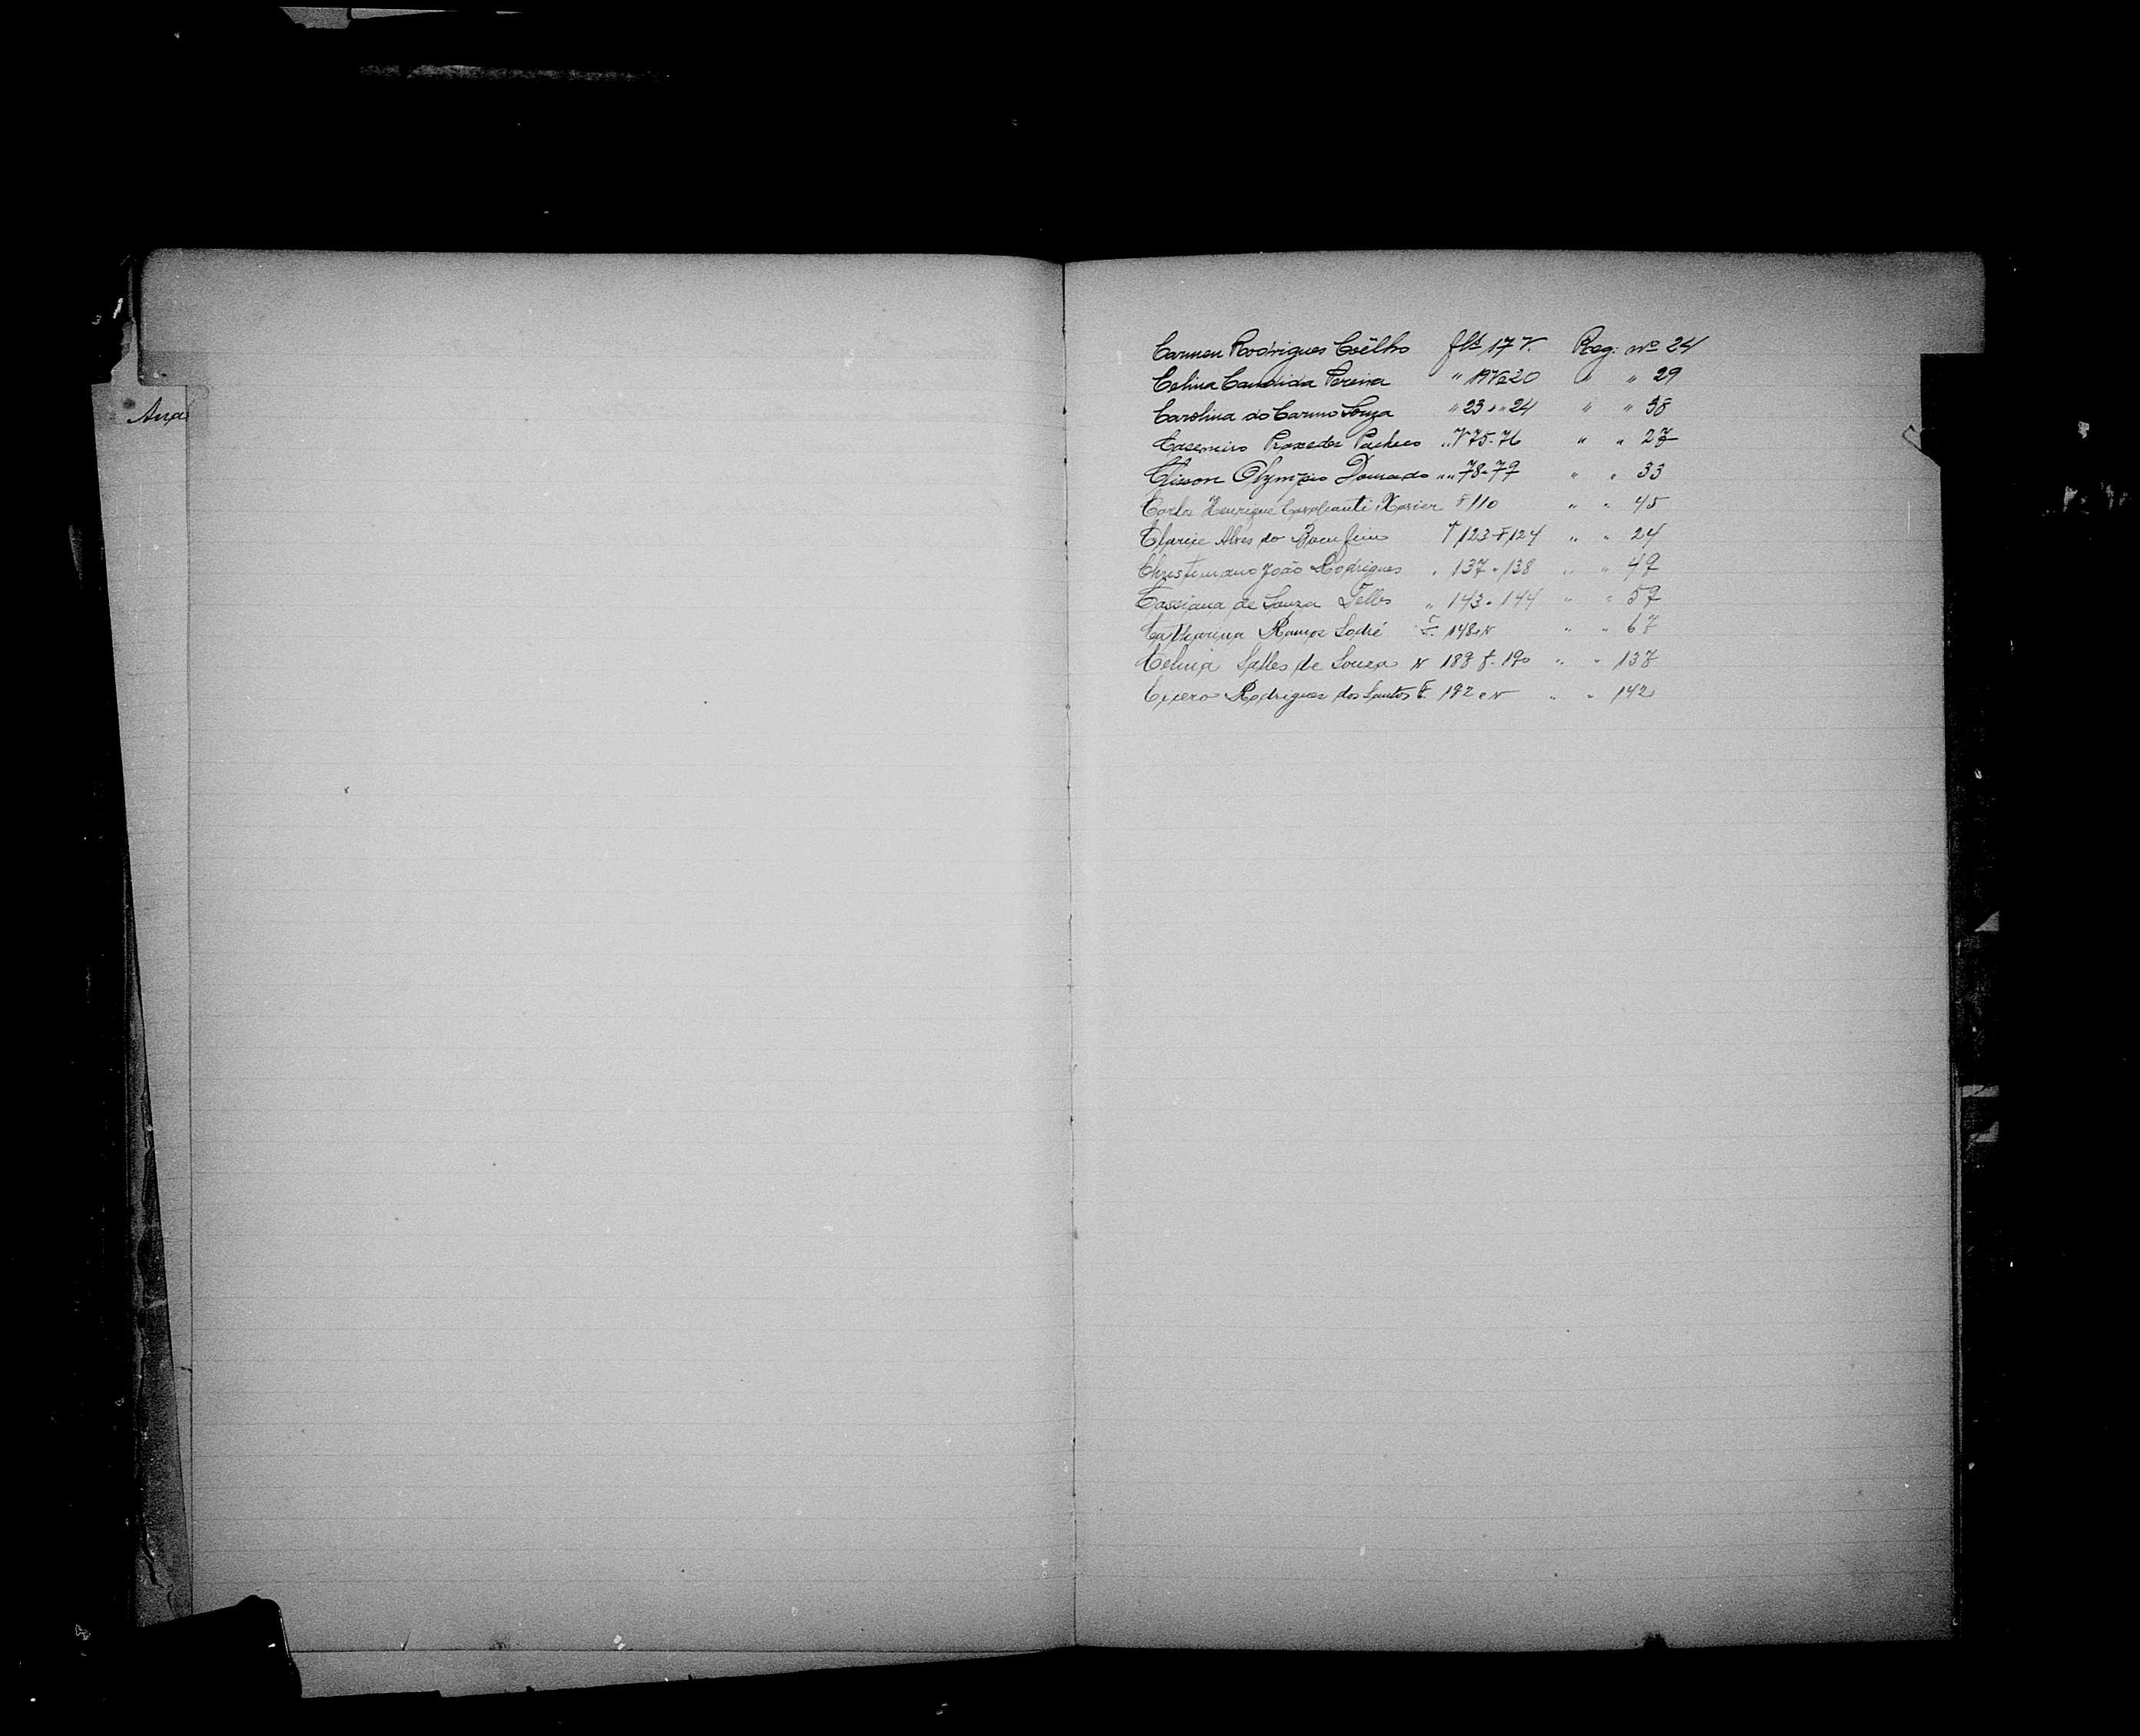 Ana
Carmen Rodrigues Coêlho fls 17 V. Reg. nº 24
Celina Candida Pereira " 19 V a 20 " " 29
Carolina do Carmo Souza " 23 " " 24 " " 38
Casemiro Praxedes Pacheco " V 75-76 " " 27
Olympio Dourado " " 78-79 " " 33
Carlos Henrique Cavalcanti Xavier F 110 " " 45
Clarice Alves do Bomfim 123 F 124 " " 24
João Rodrigues " 137 " 138 " " 49
Cassiana de Souza Telles " 143 " 144 " " 57
Catharina Ramos Sodré F. 148 e V " " 67
Celina Salles de Souza V 189 f. 190 " " 137
Cicero Rodrigues dos Santos F. 192 e V " " 142